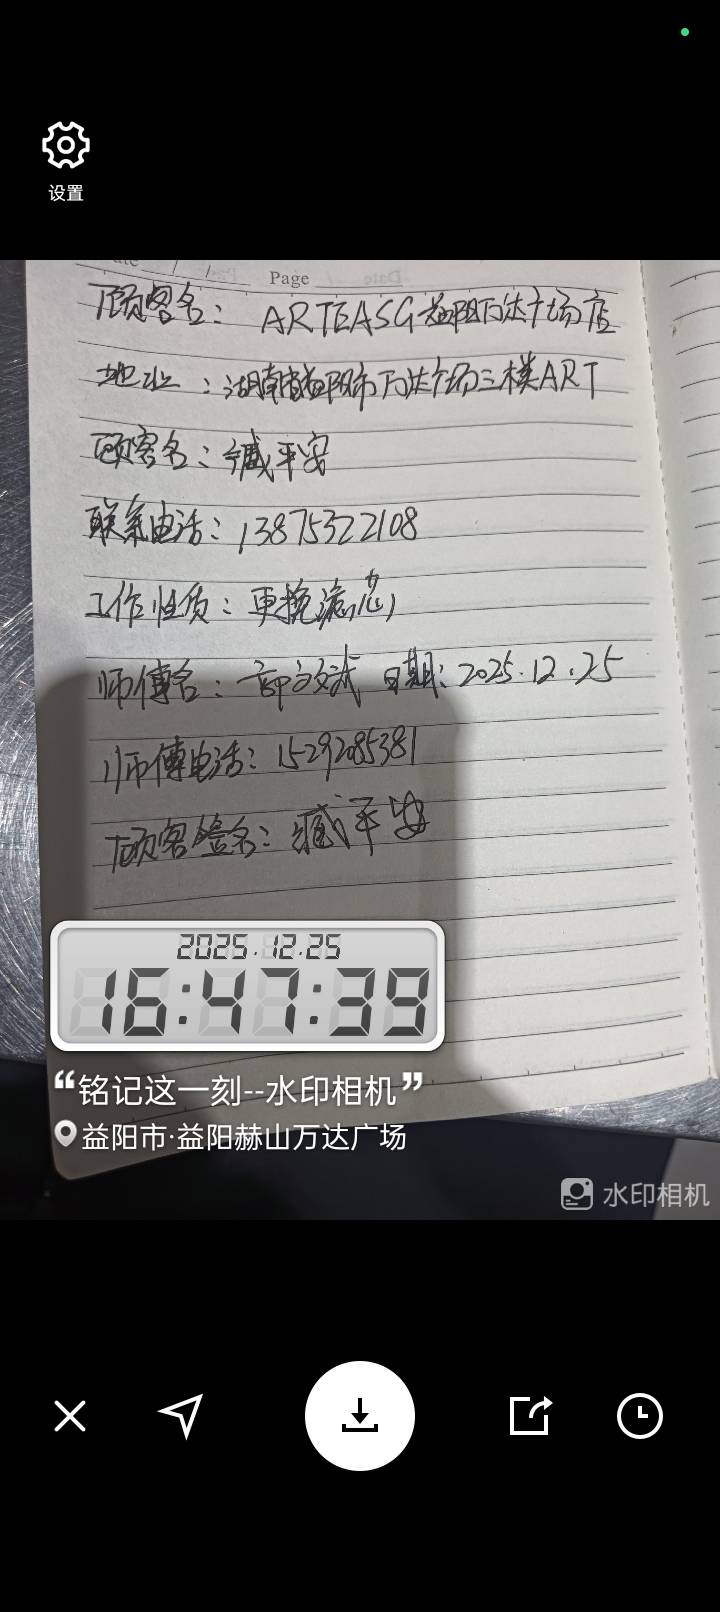 设置
Page
Date
顾客名：ARTEASG益阳万达广场店
地址：湖南省益阳市万达广场三楼ART
顾客名：臧平安
联系电话：13875322108
工作性质：更换滤芯
师傅名： 日期：2025.12.25
师傅电话：15292085381
顾客签名：臧平安
2025.12.25
16:47:39
“铭记这一刻--水印相机”
益阳市·益阳赫山万达广场
水印相机